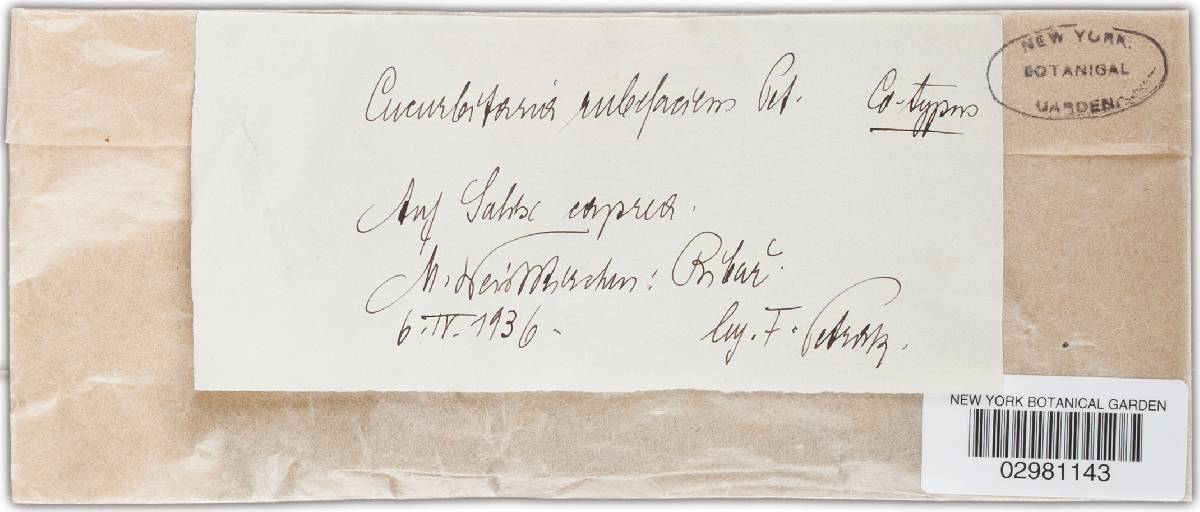 Cucurbitaria rubefaciens Pet. Co-typus
NEW YORK
BOTANICAL
GARDEN
Auf Salix caprea.
M. Weisskirchen: Ribař.
6. IV. 1936.
leg. F. Petrak.
NEW YORK BOTANICAL GARDEN
02981143